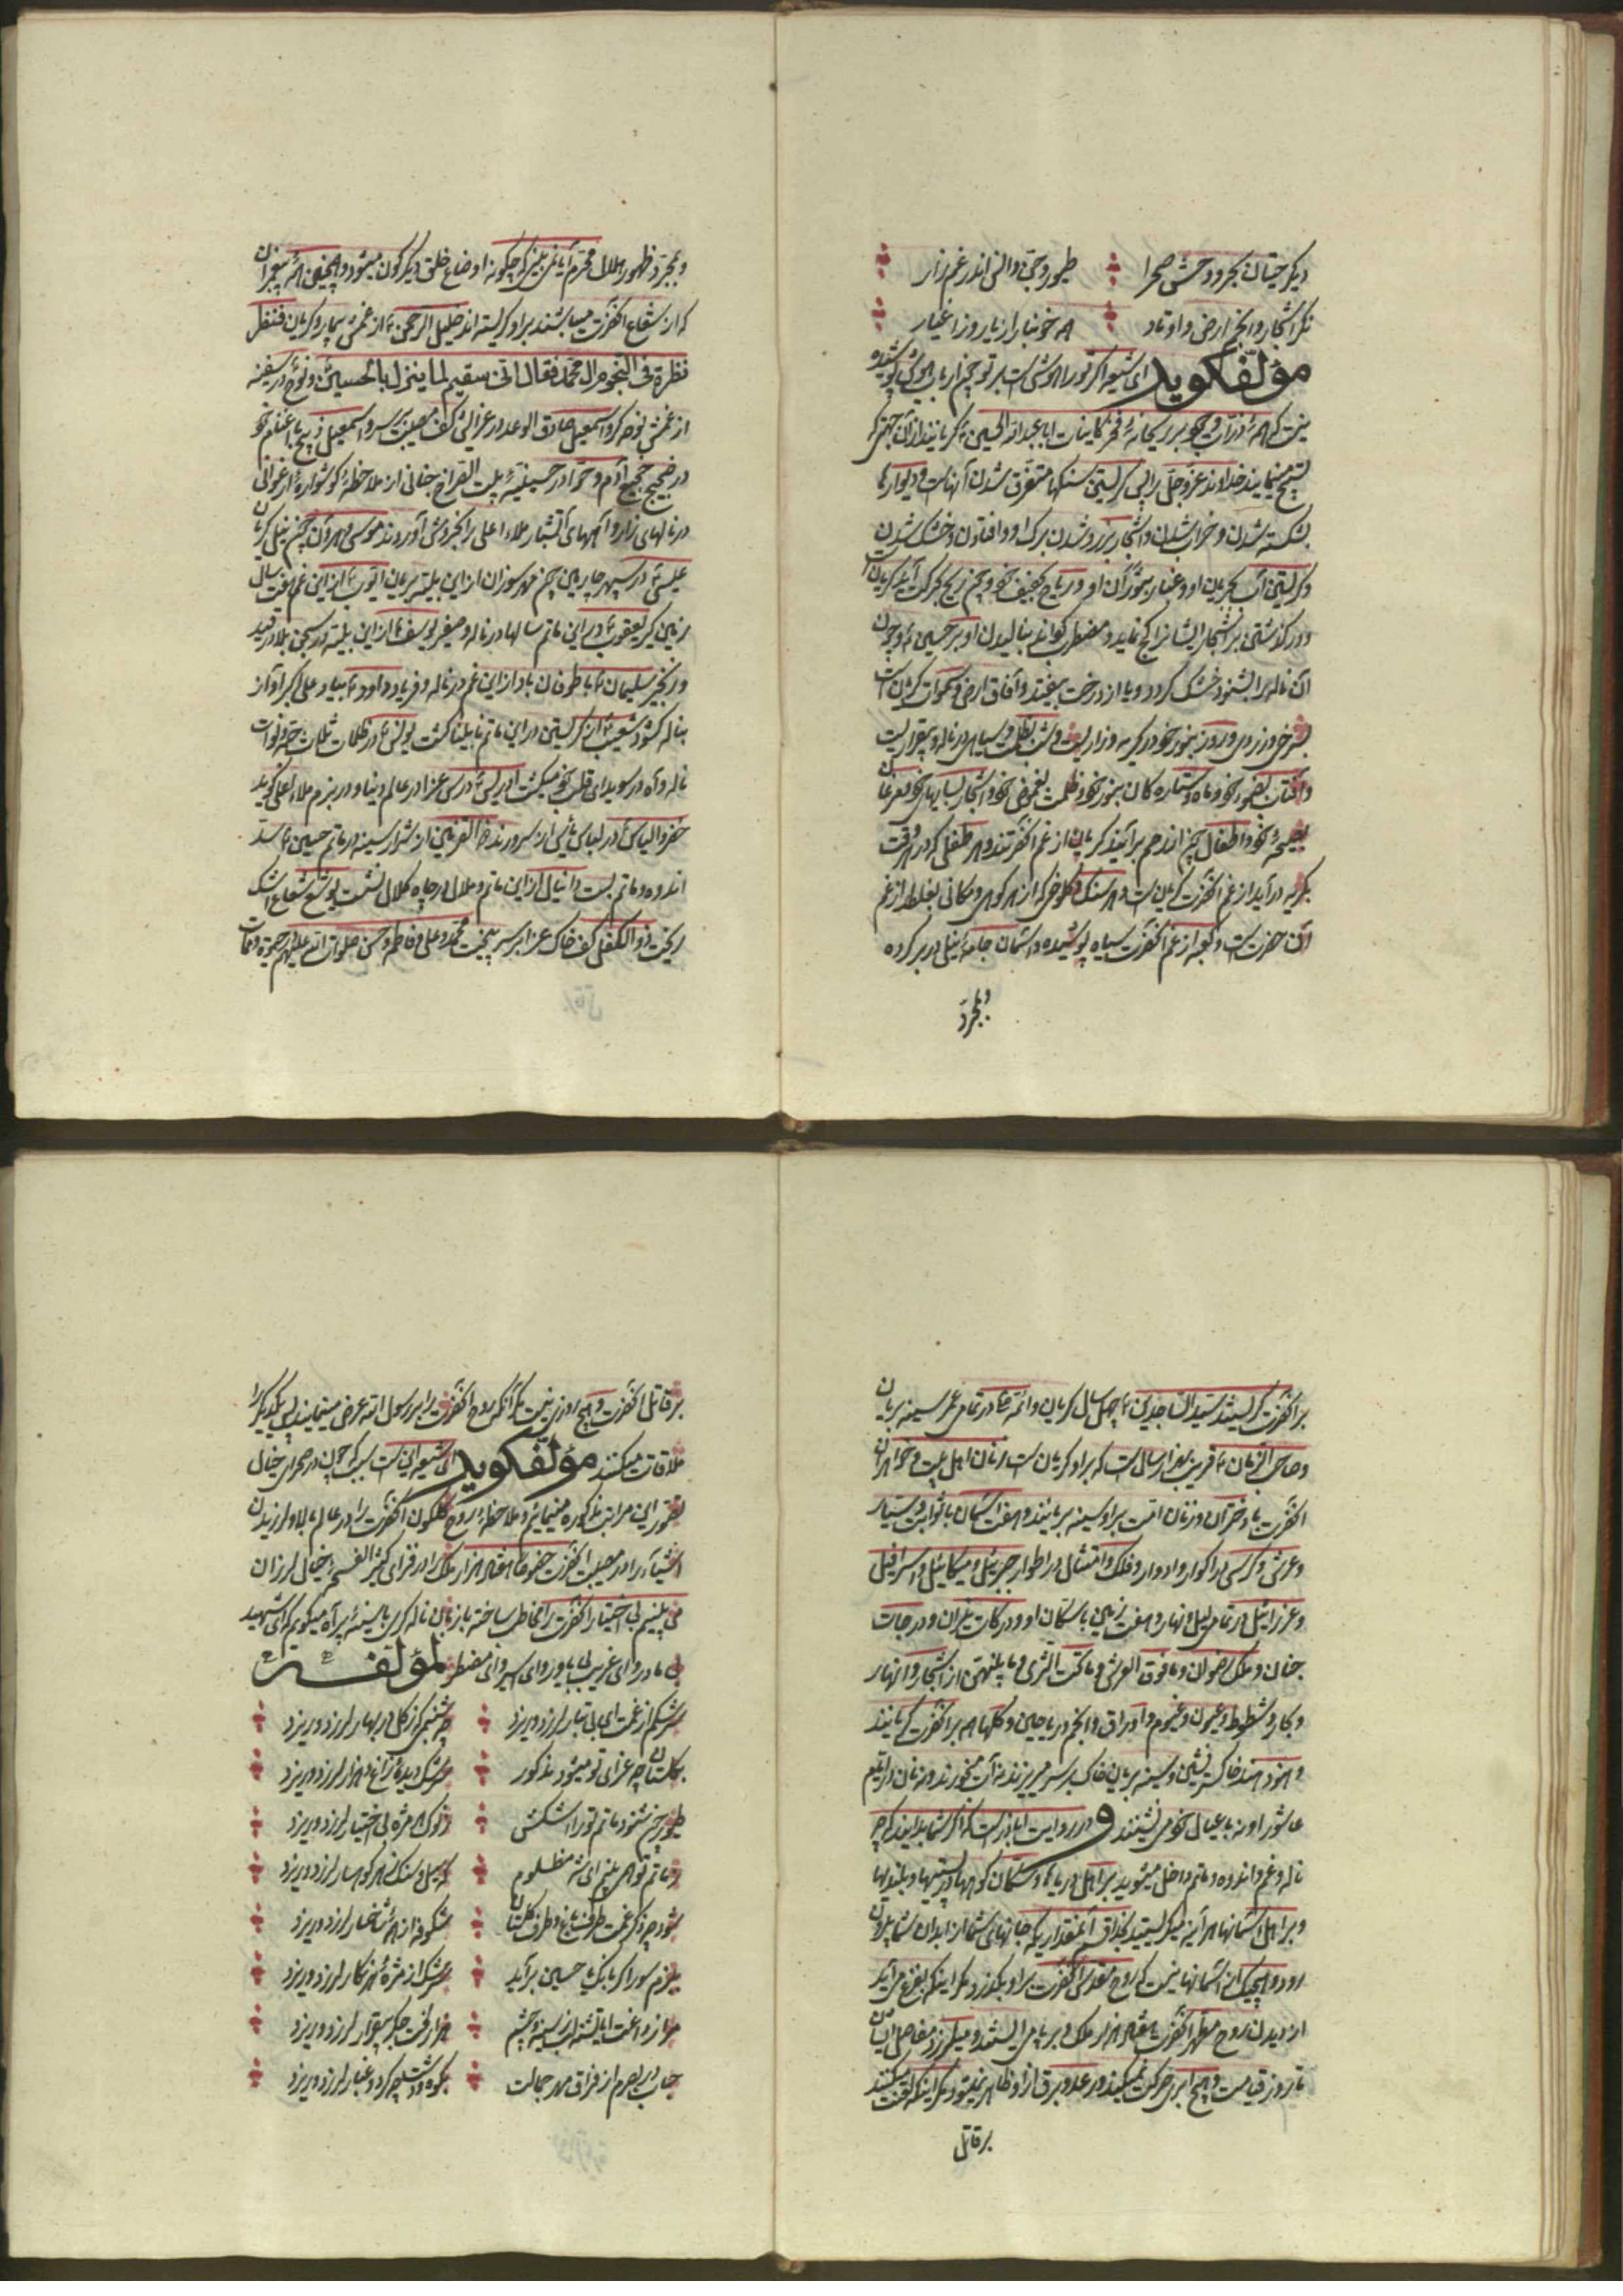 دیگر حیتان بحر و وحش صحرا طیور و جن و انس اندر غم زار
نگر اشجار و انجم ارض و اوتاد همه خونبار از یار و ز اغیار
مؤلف گوید ای شیعه اگر تو را هوشی است بر تو چون ارباب هوش پوشیده
نیست که همه ذرات و جمیع کاینات ابا عبدالله الحسین گریانند از آن جهت که
تسبیح مینمایند خداوند عز و جل را پس گریستن سنگها متفرق شدن آنهاست و دیوارها
شکسته شدن و خراب شدن و اشجار بزرد شدن برگ او و افتادن و خشک شدن
و گریستن آب بجریان او و غبار
و در گذشتن بر اشجار ایشان را کج نماید و مضطرب گرداند بنالیدن او بر حسین و چون
آن ناله را بشنود خشک گردد و یا از درخت بیفتد و آفاق ارض و سموات گریان است
بسرخی و زردی و روز بنور خود در گریه و زاریست و شب بظلمت و سیاهی در ناله و بیقراریست
و آفتاب بضوء خود و ماه و ستاره کان بنور خود و ظلمت بغموض خود و اشجار
بصیحه خود و اطفال چون از رحم برآیند گریان از غم آنحضرتند و هر طفلی که در هر وقت
بگریه درآید از غم آنحضرت گریان است و هر سنگ و کلوخی که از هر کوهی و مکانی بغلطد از غم
آن حضرت است و کعبه از غم آنحضرت سیاه پوشیده و آسمان جامه نیلی در بر کرده
و بمجرد
و بمجرد ظهور هلال محرم آیا نمی بینی که چگونه اوضاع خلق دیگرگون میشود و همچنین همه پیغمبران
که از شعاع آنحضرت میباشند بر او گریسته اند خلیل الرحمن از غمش بیمار و گریان فنظر
نظرة فی النجوم ال محمد فقال انی سقیم لما ینزل بالحسین و نوح در سفینه
از غمش نوحه گر و اسمعیل صادق الوعد در عزا کف مصیبت بر سر و اسمعیل ذبیح با اغنام خود
در ضجیج آدم و حوا در حسینیه بیت الفراغ جنانی از ملاحظه گوشواره ارغوانی
در نالهای زار و آههای آتشبار ملاء اعلی را بخروش آوردند موسی و هرون چون نیل گریان
عیسی در سپهر چارمین چون مهر سوزان از این بلیه بریان ایوب از این غم هفت سال
زمین گیر یعقوب در این ماتم سالها در ناله و صفیر یوسف از این بلیه در سجن بلا در قید
و زنجیر سلیمان با طوفان باد از این غم در ناله و فریاد داود بیاد علی اکبر آواز
بناله گشود شعیب از گریستن در این ماتم نابینا گشت یونس در ظلمات ثلاث
ناله و آه در سویدای قلب خود میکشت ادریس درس عزا در عالم دنیا و در بزم ملاء اعلی گوید
خضر و الیاس در لباس یأس از این سرورند ذو القرنین از شرار سینه در ماتم حسین سد
اندوه و ماتم بست دانیال از این ماتم و ملال در چاه کلال نشست یوشع شعاع اشک
ریخت ذو الکفل کف خاک عزا بر سر بیخت محمد و علی و فاطمه و حسن صلوات الله علیهم
بر آنحضرت گریستند سید الساجدین چهل سال گریان و ائمه در تمامی عمر سینه بریان
و صاحب الزمان قریب بهزار سال است که بر او گریان است زنان اهل بیت و خواهران
آنحضرت با دختران و زنان امت بر او سینه بریانند و هفت آسمان با ثوابت و سیار
و عرش و کرسی در اکوار و ادوار و فلک و امتثال در اطوار جبرئیل و میکائیل و اسرافیل
و عزرائیل در تمامی لیل و نهار و هفت زمین با سکان او و درکات نیران و درجات
جنان و ملک رضوان و ما فوق العرش و ما تحت الثری و ما ینتهی از اشجار و انهار
و بحار و شطوط و عیون و غیوم و اوراق و انجم و ریاحین و گلها هم بر آنحضرت گریانند
و هنود هند خاکستر نشین و سینه بریان خاک بر سر میریزند نه آب میخورند و نه نان در ایام
عاشورا و نه با عیال خود می نشینند و در روایت اباذر است که اگر شما بدانید که چه
ناله و غم و اندوه و ماتم داخل میشود بر اهل دریاها و سکان کوهها و بیشها و بلندیها
و بر اهل آسمانها هر آینه میگریستید بخدا قسم آنقدر که جانهای شما از ابدان شما بیرون
رود و هیچیک از آسمانها نیست که روح مقدس آنحضرت بر او بگذرد مگر اینکه بفزع می آید
از دیدن روح مطهر آنحضرت هفتاد هزار ملک و بر پا می ایستند و میلرزد مفاصل ایشان
تا روز قیامت و هیچ ابری حرکت نمیکند و رعد و برق از او ظاهر نمیشود مگر اینکه لعنت میکنند
بر قاتل
بر قاتل آنحضرت و هیچ روزی نیست مگر آنکه روح آنحضرت را بر رسول الله عرض مینمایند پس یکدیگر را
ملاقات میکنند مؤلف گوید ای شیعه این است سبب که چون در صحرای خیال
تصور این مراتب مذکوره مینمایم و ملاحظه روح گلگون آنحضرت را در عالم بالا و لرزیدن
اشیاء را در مصیبت آنحضرت خصوصا هفتاد هزار ملک را در فزای کثیر الفسحه خیال لرزان
می بینم بی اختیار آنحضرت را مخاطب ساخته با زبان ناله گری با سینه پر آه میگویم که ای شهید
بی مادر و ای غریب بی یاور و ای اسیر و ای مضطر لمؤلفه
سرشکم از غمت ای بی تبار لرزد و ریزد چو شبنمی که ز گل در بهار لرزد و ریزد
بگلستان چو عزای تو میشود مذکور سرشک دیده زاغ و هزار لرزد و ریزد
طیور چون شنود ماتم تو را اشکش ز نوک هر مژه بی اختیار لرزد و ریزد
ز ماتم تو همی بینم ای شه مظلوم که سیل و سنگ ز هر کوهسار لرزد و ریزد
شود چو ذکر غمت طرف باغ و طرف گلستان شکوفه از همه شاخسار لرزد و ریزد
ببزم سور اگر بانگ یا حسین برآید سرشک از مژه هر نگار لرزد و ریزد
هزار لخت جگر بیقرار لرزد و ریزد
حباب وار بصرم از فراق مهر جمالت بکوه و دشت چو گرد و غبار لرزد و ریزد